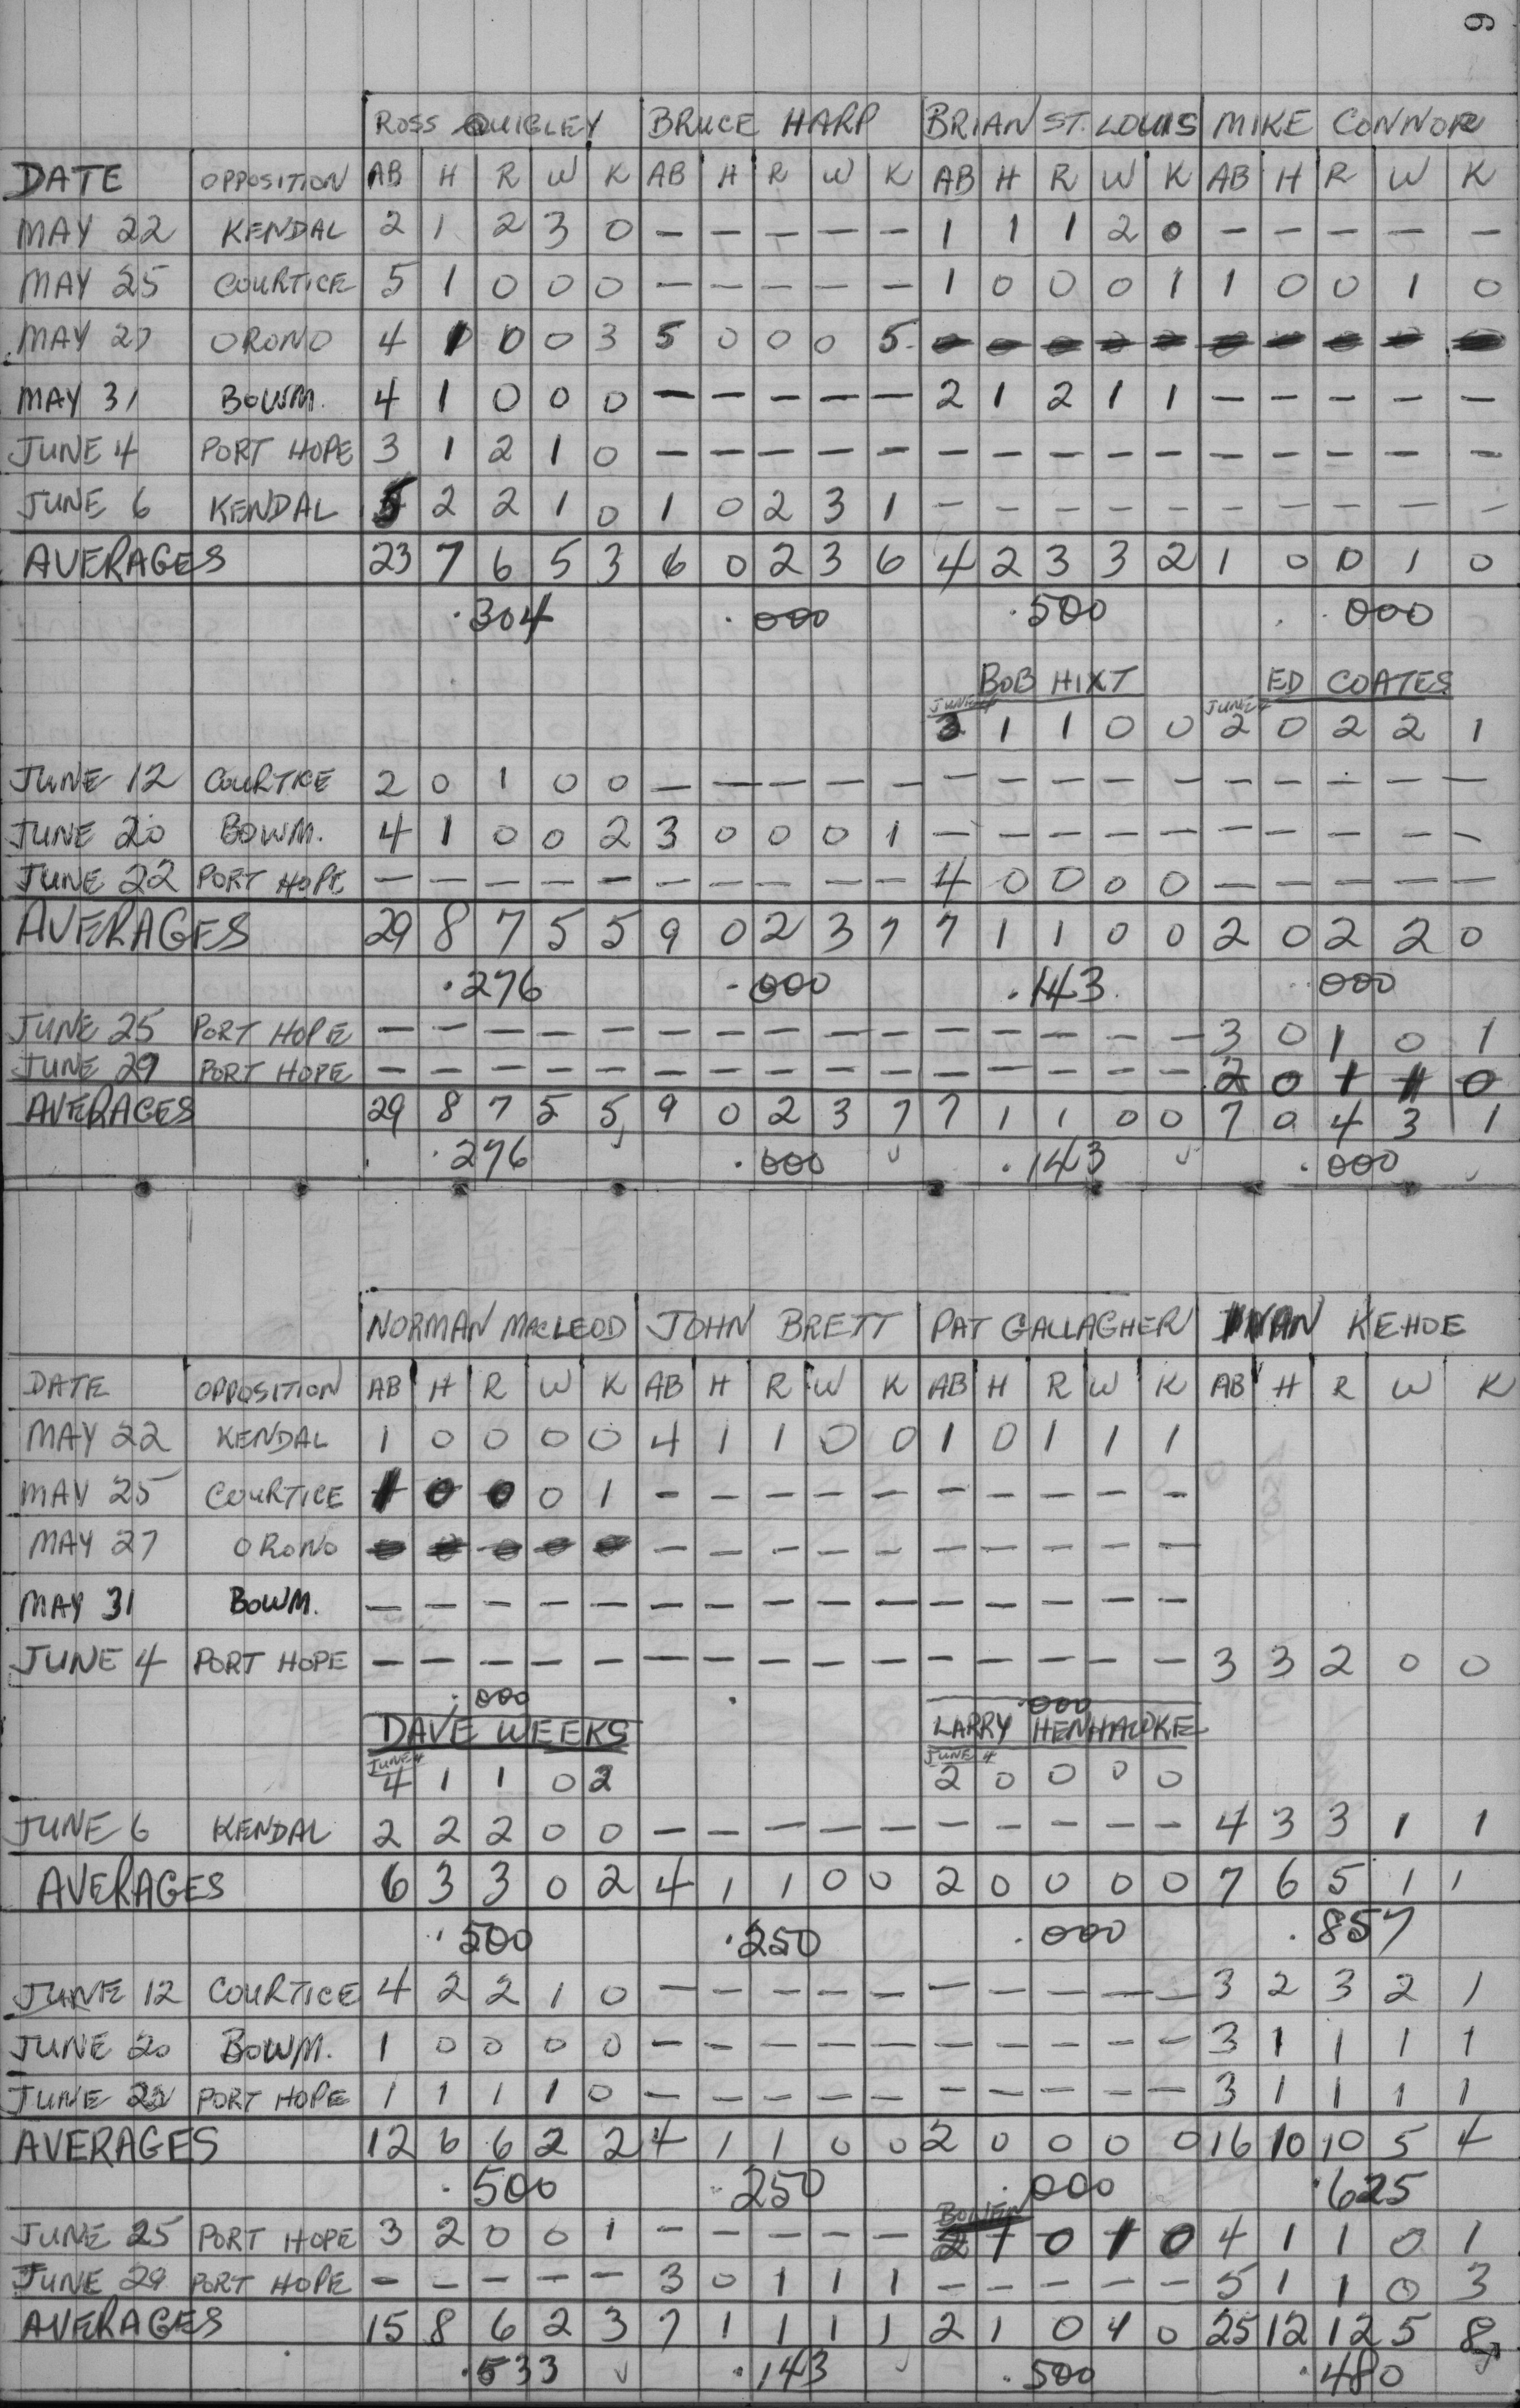 9
ROSS QUIGLEY BRUCE HARP BRIAN ST. LOUIS MIKE CONNOR
DATE OPPOSITION AB H R W K AB H R W K AB H R W K AB H R W K
MAY 22 KENDAL 2 1 2 3 0 - - - - - 1 1 1 2 0 - - - - -
MAY 25 COURTICE 5 1 0 0 0 - - - - - 1 0 0 0 1 1 0 0 1 0
MAY 27 ORONO 4 1 0 0 3 5 0 0 0 5
MAY 31 BOWM. 4 1 0 0 0 - - - - - 2 1 2 1 1 - - - - -
JUNE 4 PORT HOPE 3 1 2 1 0 - - - - - - - - - - - - - - -
JUNE 6 KENDAL 5 2 2 1 0 1 0 2 3 1 - - - - - - - - - -
AVERAGES 23 7 6 5 3 6 0 2 3 6 4 2 3 3 2 1 0 0 1 0
.304 .000 .500 .000
BOB HIXT ED COATES
JUNE 4 JUNE 4
3 1 1 0 0 2 0 2 2 1
JUNE 12 COURTICE 2 0 1 0 0 - - - - - - - - - - - - - - -
JUNE 20 BOWM. 4 1 0 0 2 3 0 0 0 1 - - - - - - - - - -
JUNE 22 PORT HOPE - - - - - - - - - - 4 0 0 0 0 - - - - -
AVERAGES 29 8 7 5 5 9 0 2 3 7 7 1 1 0 0 2 0 2 2 0
.276 .000 .143 .000
JUNE 25 PORT HOPE - - - - - - - - - - - - - - - 3 0 1 0 1
JUNE 29 PORT HOPE - - - - - - - - - - - - - - - 2 0 1 1 0
AVERAGES 29 8 7 5 5 9 0 2 3 7 7 1 1 0 0 7 0 4 3 1
.276 .000 .143 .000
NORMAN MACLEOD JOHN BRETT PAT GALLAGHER IVAN KEHOE
DATE OPPOSITION AB H R W K AB H R W K AB H R W K AB H R W K
MAY 22 KENDAL 1 0 0 0 0 4 1 1 0 0 1 0 1 1 1
MAY 25 COURTICE 1 0 0 0 1 - - - - - - - - - -
MAY 27 ORONO - - - - - - - - - -
MAY 31 BOWM. - - - - - - - - - - - - - - -
JUNE 4 PORT HOPE - - - - - - - - - - - - - - - 3 3 2 0 0
.000 . .000
DAVE WEEKS LARRY HENHAWKE
JUNE 4 JUNE 4
4 1 1 0 2 2 0 0 0 0
JUNE 6 KENDAL 2 2 2 0 0 - - - - - - - - - - 4 3 3 1 1
AVERAGES 6 3 3 0 2 4 1 1 0 0 2 0 0 0 0 7 6 5 1 1
.500 .250 .000 .857
JUNE 12 COURTICE 4 2 2 1 0 - - - - - - - - - - 3 2 3 2 1
JUNE 20 BOWM. 1 0 0 0 0 - - - - - - - - - - 3 1 1 1 1
JUNE 22 PORT HOPE 1 1 1 1 0 - - - - - - - - - - 3 1 1 1 1
AVERAGES 12 6 6 2 2 4 1 1 0 0 2 0 0 0 0 16 10 10 5 4
.500 .250 .000 .625
JUNE 25 PORT HOPE 3 2 0 0 1 - - - - - 2 1 0 1 0 4 1 1 0 1
JUNE 29 PORT HOPE - - - - - 3 0 1 1 1 - - - - - 5 1 1 0 3
AVERAGES 15 8 6 2 3 7 1 1 1 1 2 1 0 1 0 25 12 12 5 8
.533 .143 .500 .480